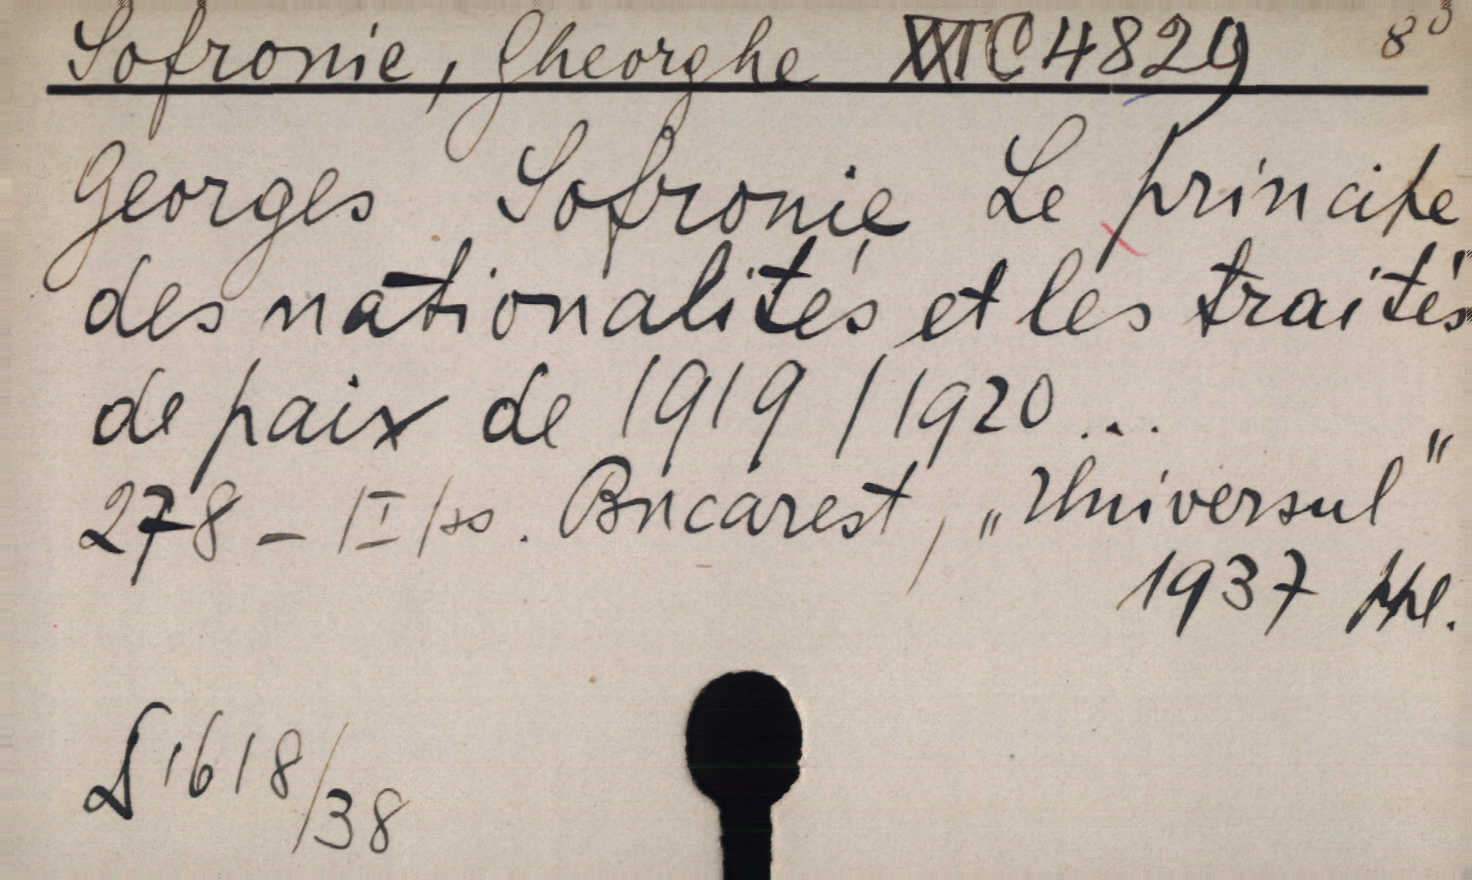 Sofronie, Gheorghe XXIC 4829 8°
Georges Sofronie Le principe
des nationalités et les traités
de paix de 1919/1920...
278 - /I/ss. Bucarest, „Universul"
1937 ppl.
1618/38